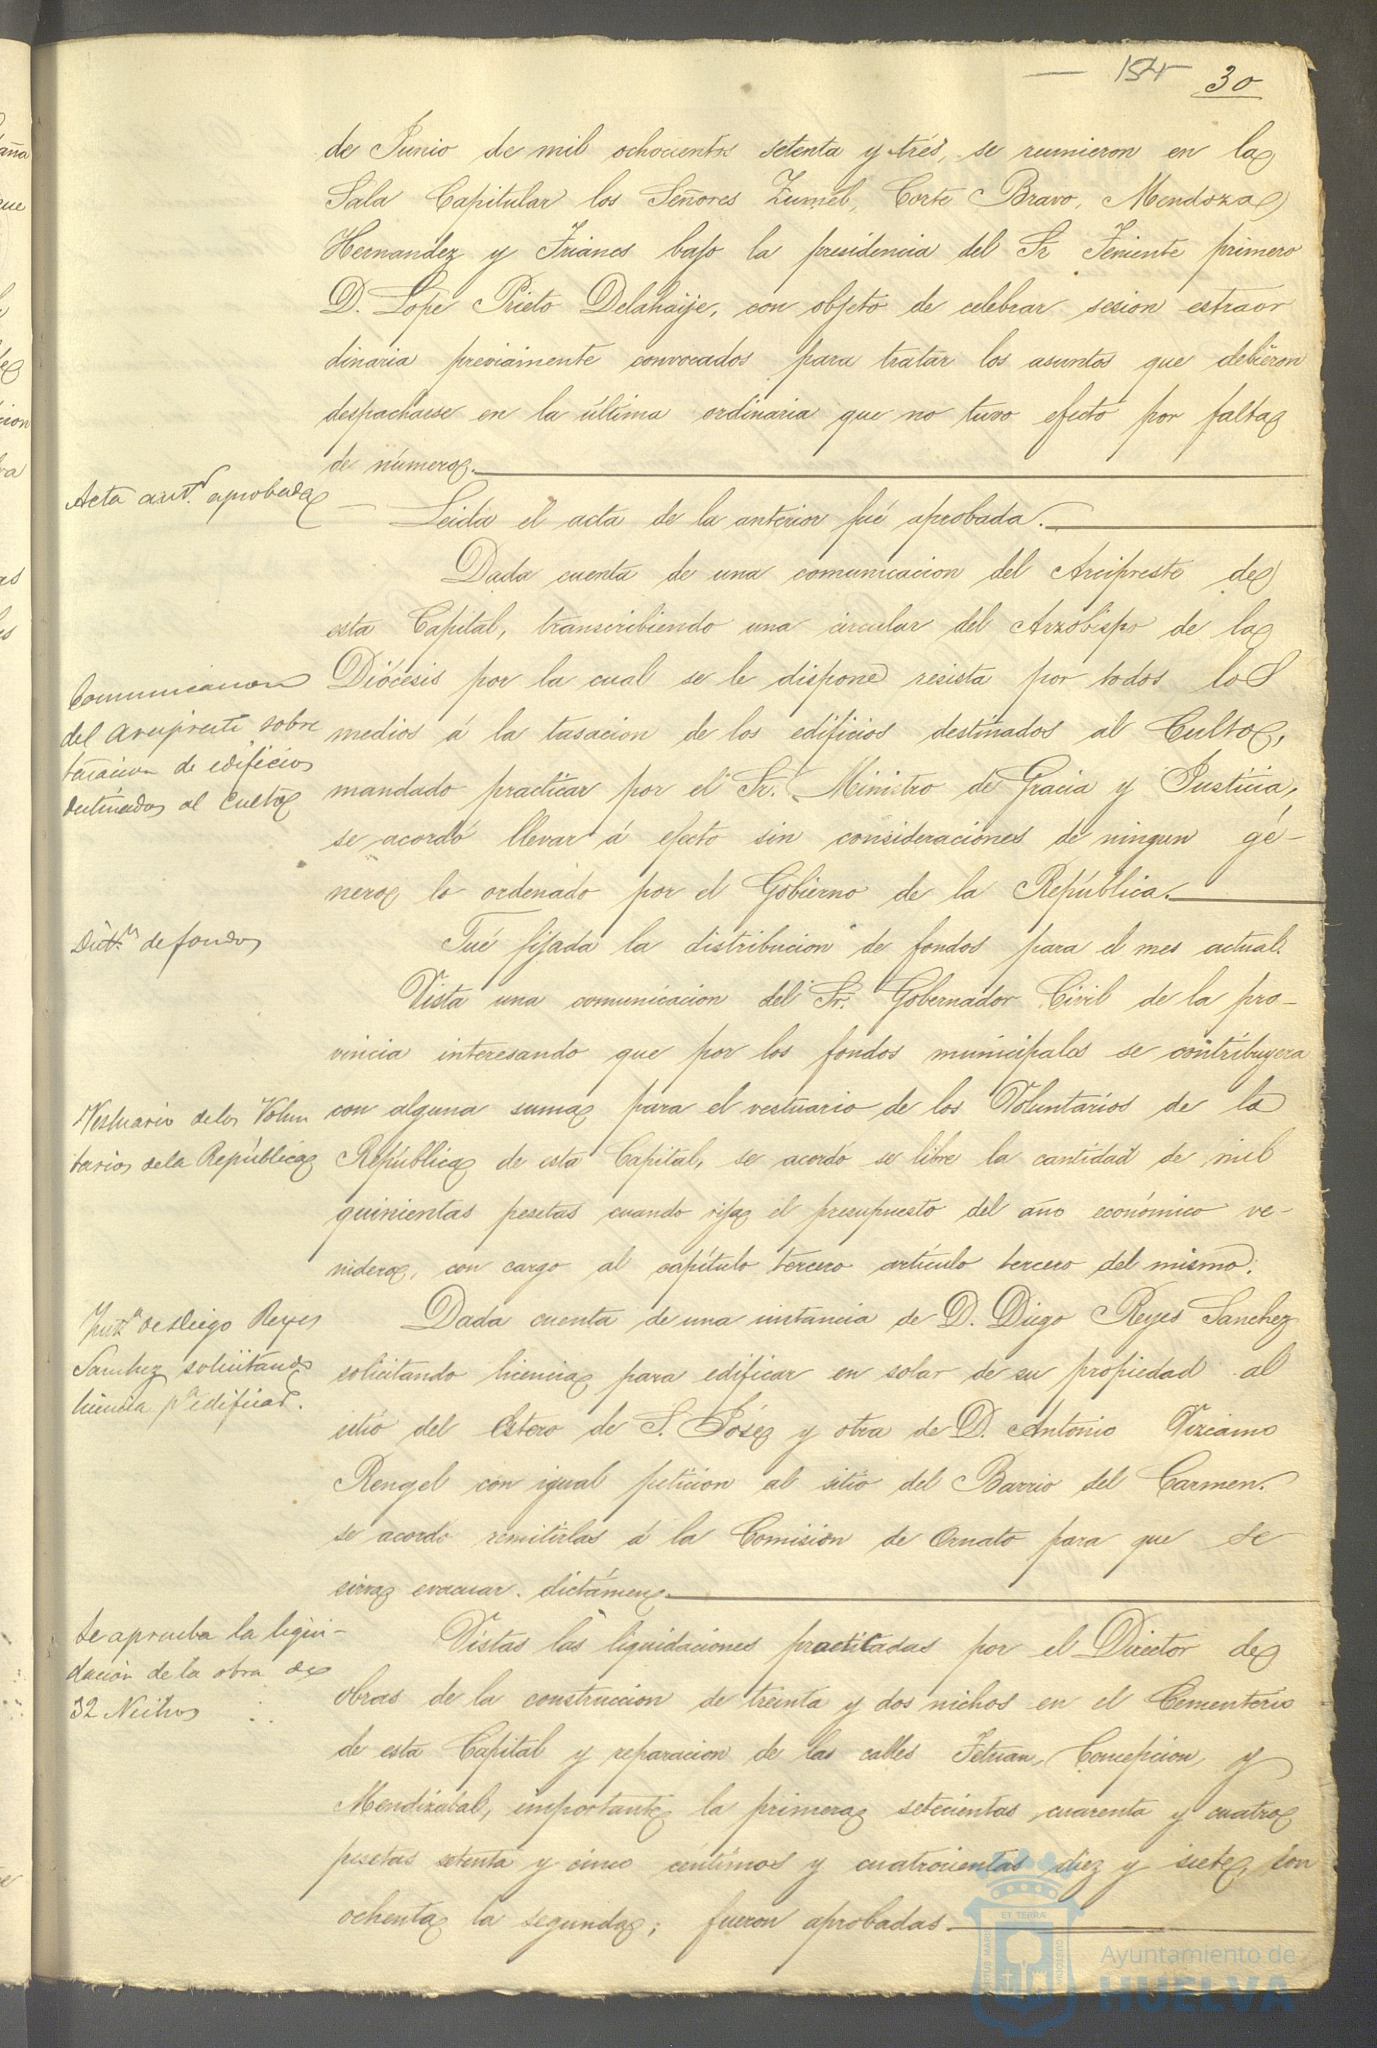 154 30
de Junio de mil ochocientos setenta y trés, se reunieron en la
Sala Capitular los Señores Zumel, Corte Bravo, Mendoza
Hernandez y Frianes bajo la presidencia del Sr Teniente primero
D. Lope Prieto Delahaije, con objeto de celebrar sesion estraor
dinaria previamente convocados para tratar los asuntos que debieron
despacharse en la última ordinaria que no tuvo efecto por falta
de número.
Acta ant.r aprobada
Leida el acta de la anterior fué aprobada.
Dada cuenta de una comunicacion del Arcipreste de
esta Capital, transcribiendo una circular del Arzobispo de la
Diócesis por la cual se le dispone resista por todos los
medios á la tasacion de los edificios destinados al Culto,
mandado practicar por el Sr. Ministro de Gracia y Justicia,
se acordó llevar á efecto sin consideraciones de ningun gé-
nero lo ordenado por el Gobierno de la República.
Comunicacion
del Arcipreste sobre
tasacion de edificios
destinados al Culto
Distn de fondos
Fué fijada la distribucion de fondos para el mes actual.
Vista una comunicacion del Sr. Gobernador Civil de la pro-
vincia interesando que por los fondos municipales se contribuyera
con alguna suma para el vestuario de los Voluntarios de la
República de esta Capital, se acordó se libre la cantidad de mil
quinientas pesetas cuando rija el presupuesto del año económico ve-
nidero, con cargo al capítulo tercero artículo tercero del mismo.
Vestuario de los Volun
tarios de la República
Dada cuenta de una instancia de D. Diego Reyes Sanchez
solicitando licencia para edificar en solar de su propiedad al
sitio del Estero de S. José y otra de D. Antonio Vizcaino
Rengel con igual peticion al sitio del Barrio del Carmen.
se acordó remitirlas á la Comision de Ornato para que se
sirva evacuar dictámen.
Inst.a de Diego Reyes
Sanchez solicitando
licencia p.a edificar.
Vistas las liquidaciones practicadas por el Director de
obras de la construccion de treinta y dos nichos en el Cementerio
de esta Capital y reparacion de las calles Tetuan, Concepcion, y
Mendizabal, importante la primera setecientas cuarenta y cuatro
pesetas setenta y cinco centimos y cuatrocientas diez y siete con
ochenta la segunda; fueron aprobadas.
Se aprueba la liqui-
dacion de la obra de
32 Nichos
Ayuntamiento de
HUELVA